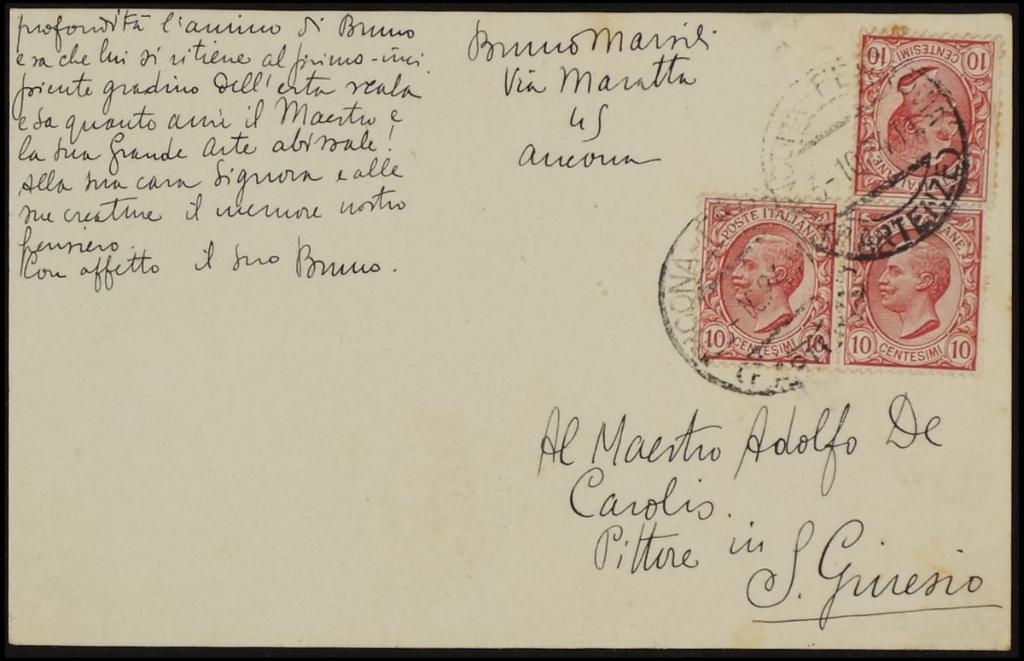 profondità l'animo di Bruno
e sa che lui si ritiene al primo-inci
piente gradino dell'erta scala
e sa quanto ami il Maestro e
la sua Grande Arte abissale!
Alla sua cara Signora e alle
sue creature il memore nostro
pensiero.
Con affetto il suo Bruno.
Bruno Marsili
Via Maratta
45
Ancona
10 CENTESIMI 10
POSTE ITALIANE
10 CENTESIMI 10
10 CENTESIMI 10
ANCONA
PARTENZE
Al Maestro Adolfo De
Carolis.
Pittore in
S. Ginesio